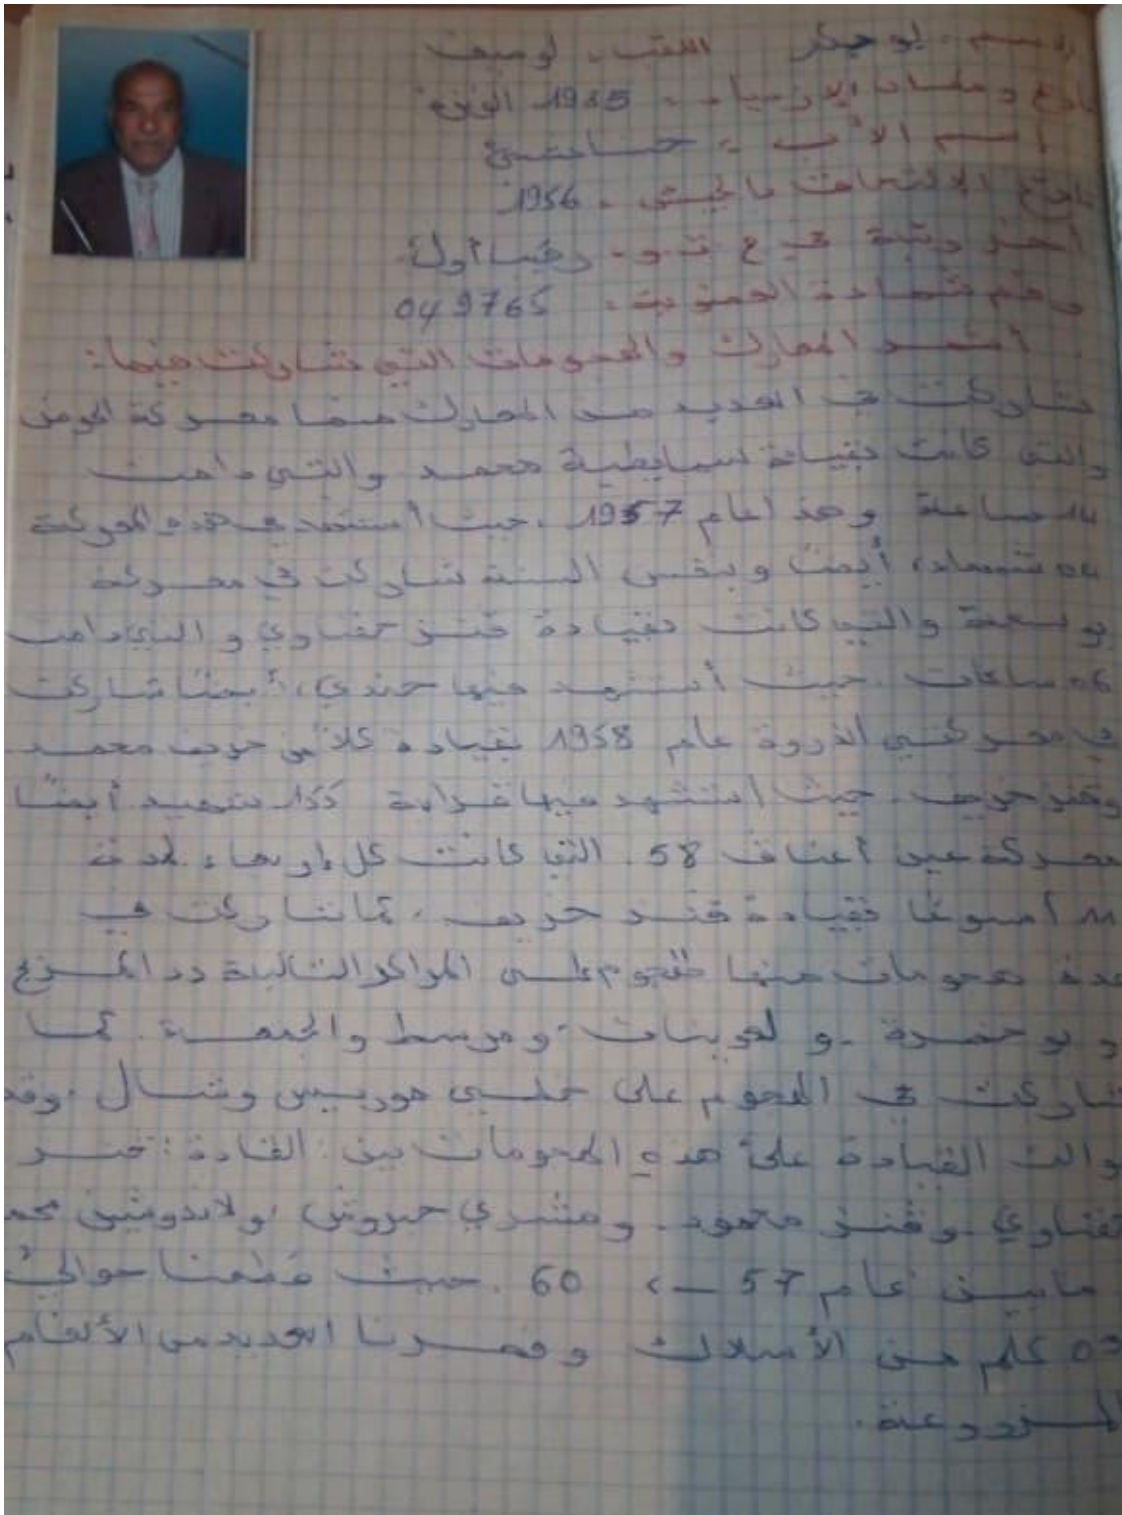 الاسم: بوجعكر اللقب: لوصيف
تاريخ ومكان الازدياد: 1935 الونزة
اسم الأب:
تاريخ الالتحاق بالجيش: 1956
آخر رتبة في ج ت و: رقيب أول
رقم شهادة العضوية: 049765
أشهد المعارك والهجومات التي شاركت فيها:
شاركت في العديد من المعارك منها معركة
والتي كانت بقيادة محمد والتي دامت
14 ساعة وهذا عام 1957. حيث أستشهد في هذه المعركة
04 شهداء، أيضا وبنفس السنة شاركت في معركة
والتي كانت بقيادة قنز حفناوي والتي دامت
06 ساعات. حيث أستشهد فيها جندي، أيضا شاركت
في معركتي الذروة عام 1958 بقيادة كلا من خريف محمد
وقنز خريف. حيث استشهد فيها قرابة شهيد أيضا
معركة عين أعناق 58. التي كانت كل أربعاء لمدة
11 أسبوعا بقيادة قنز خريف. كما شاركت في
عدة هجومات منها هجوم على المراكز التالية
وبوخضرة - ولعوينات - ومرسط والمجمعة. كما
شاركت في الهجوم على خطي موريس وشال. وقد
توالت القيادة على هذه الهجومات بين القادة: قنز
حفناوي وقنز محمود. ومشري محم
ما بين عام 57 ــ> 60. حيث قطعنا حوالي
كلم من الأسلاك وفجرنا العديد من الألغام
المزروعة.